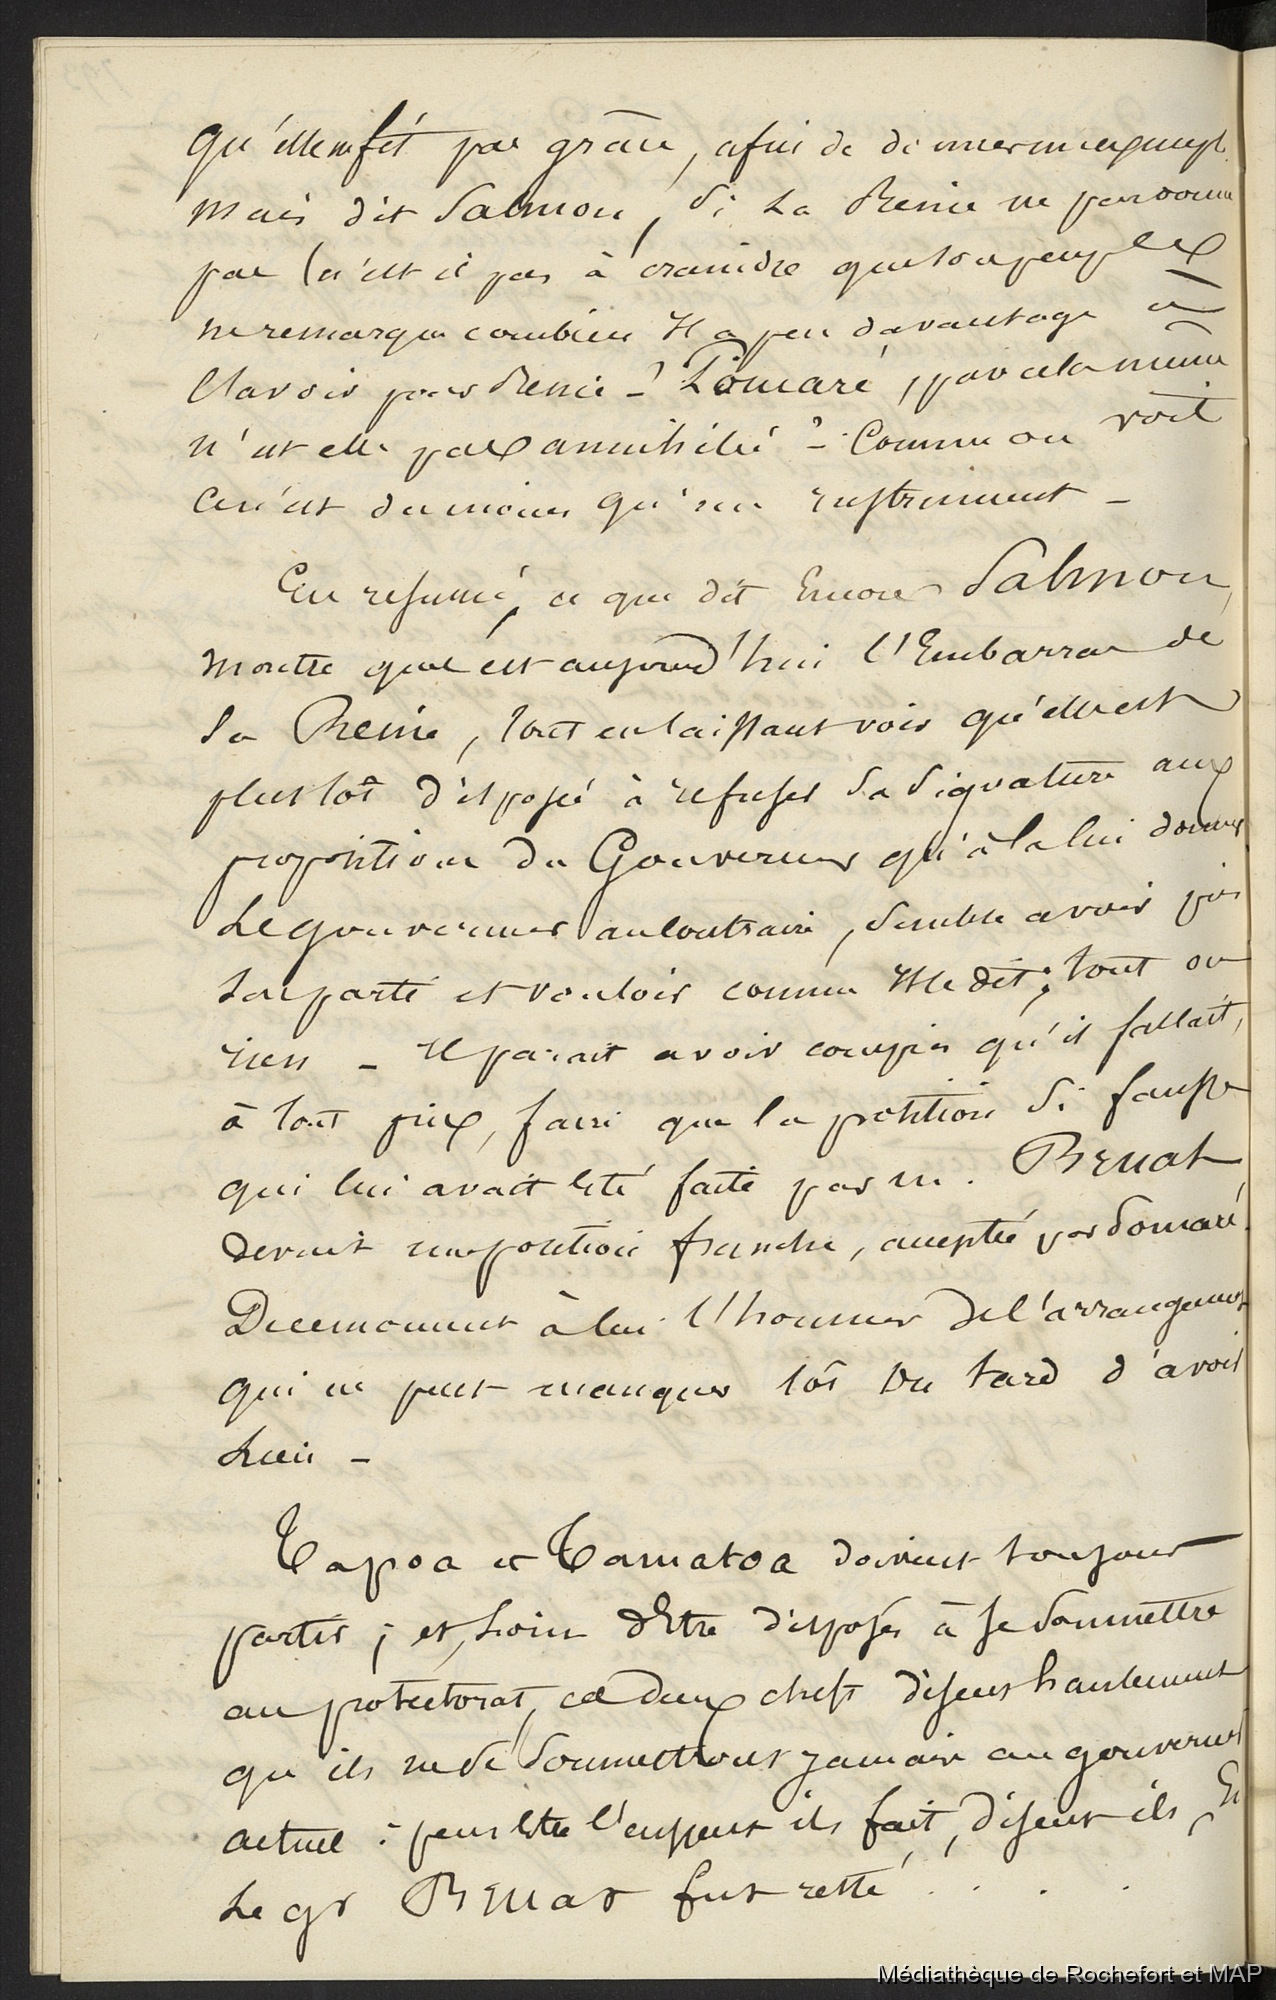 qu'elle ne fît pas grâce, afin de donner un exemple.
Mais dit Salmon, si la Reine ne pardonne
pas (n'est il pas à craindre que son peuple
ne remarque combien il a peu d'avantage à
l'avoir pour Reine - ? Pomaré, par cela même
n'est elle pas annihilée ? - Comme on voit
ce n'est du moins qu'un instrument -
En resumé, ce que dit encore Salmon,
montre quel est aujourd'hui l'Embarras de
la Reine, tout en laissant voir qu'elle est
plustôt disposée à refuser sa signature aux
propositions du Gouverneur qu'à la lui donner
Le gouverneur au contraire, semble avoir pris
son parti et vouloir comme il le dit ; tout ou
rien - Il parait avoir compris qu'il fallait,
à tout prix, faire que la position si fausse
qui lui avait été faite par m. Bruat
devint une position franche, acceptée par Pomaré.
De ce moment à lui l'honneur de l'arrangement
qui ne peut manquer tôt ou tard d'avoir
lieu -
Tapoa et Tamatoa doivent toujours
partir ; et, loin d'Etre disposés à se soumettre
au protectorat, ces deux chefs disent hautement
qu'ils ne se soumettront jamais au gouverneur
actuel : peut être l'eussent ils fait, disent ils, Si
Le gr Bruat fut resté . . . .
Médiathèque de Rochefort et MAP